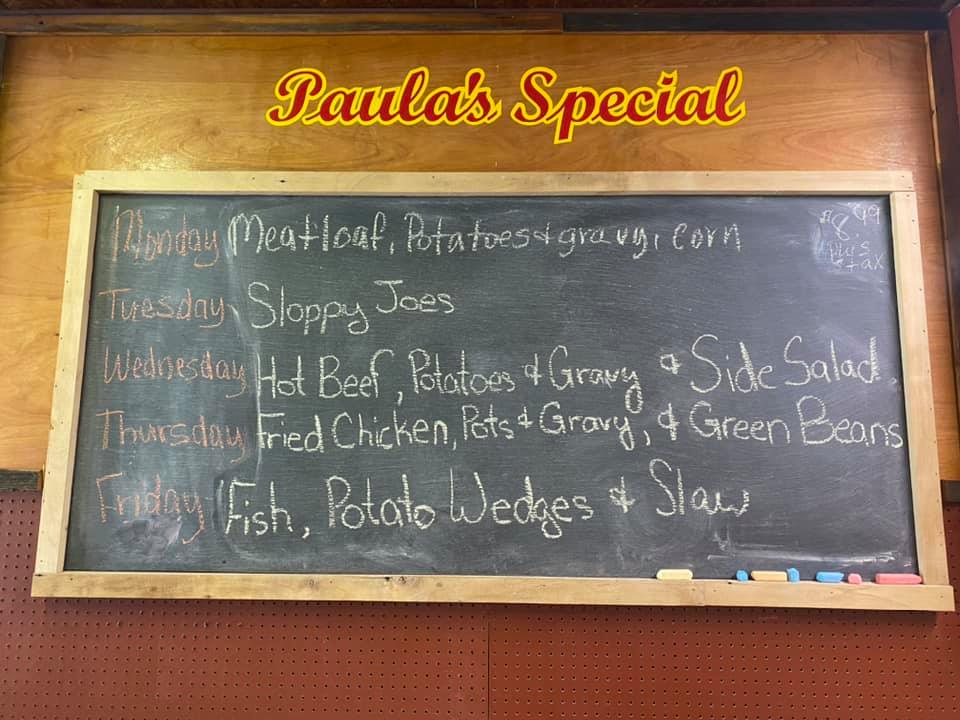 Paula's Special
Monday Meatloaf, Potatoes & gravy, corn
$8.99
plus
tax
Tuesday, Sloppy Joes
Wednesday Hot Beef, Potatoes & Gravy & Side Salad,
Thursday Fried Chicken, Pots & Gravy, & Green Beans
Friday Fish, Potato Wedges & Slaw